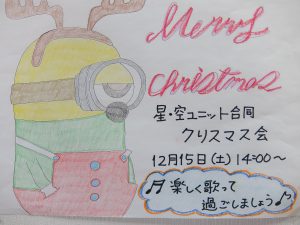 Merry
Christmas
星・空ユニット合同
クリスマス会
12月15日(土) 14:00〜
楽しく歌って
過ごしましょう